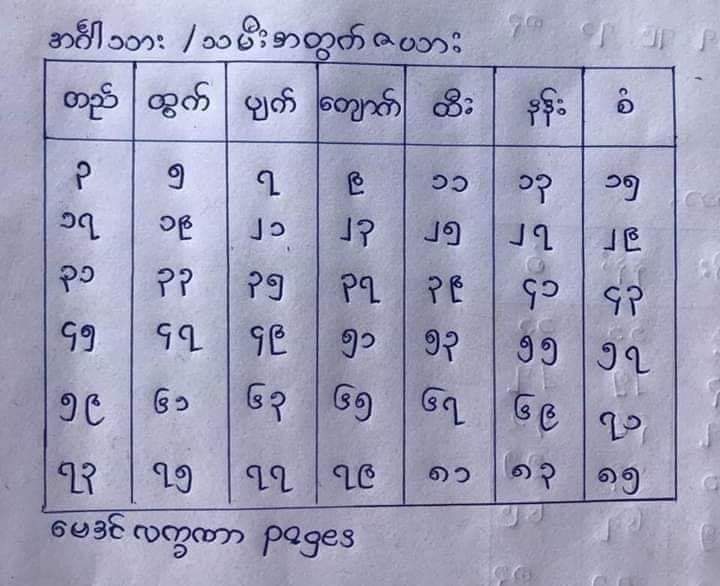 အင်္ဂါသား / သမီးအတွက် ဇယား
တည် ထွက် ပျက် ကျောက် ထီး နန်း စံ
၃ ၅ ၇ ၉ ၁၁ ၁၃ ၁၅
၁၇ ၁၉ ၂၁ ၂၃ ၂၅ ၂၇ ၂၉
၃၁ ၃၃ ၃၅ ၃၇ ၃၉ ၄၁ ၄၃
၄၅ ၄၇ ၄၉ ၅၁ ၅၃ ၅၅ ၅၇
၅၉ ၆၁ ၆၃ ၆၅ ၆၇ ၆၉ ၇၁
၇၃ ၇၅ ၇၇ ၇၉ ၈၁ ၈၃ ၈၅
မေဒင် လက္ခဏာ pages